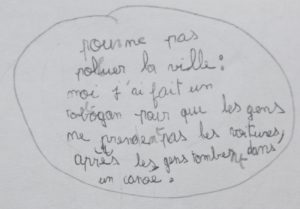 pour ne pas
polluer la ville:
moi j'ai fait un
tobogan pour que les gens
ne prendent pas les voitures,
après les gens tombent dans
un canoë.